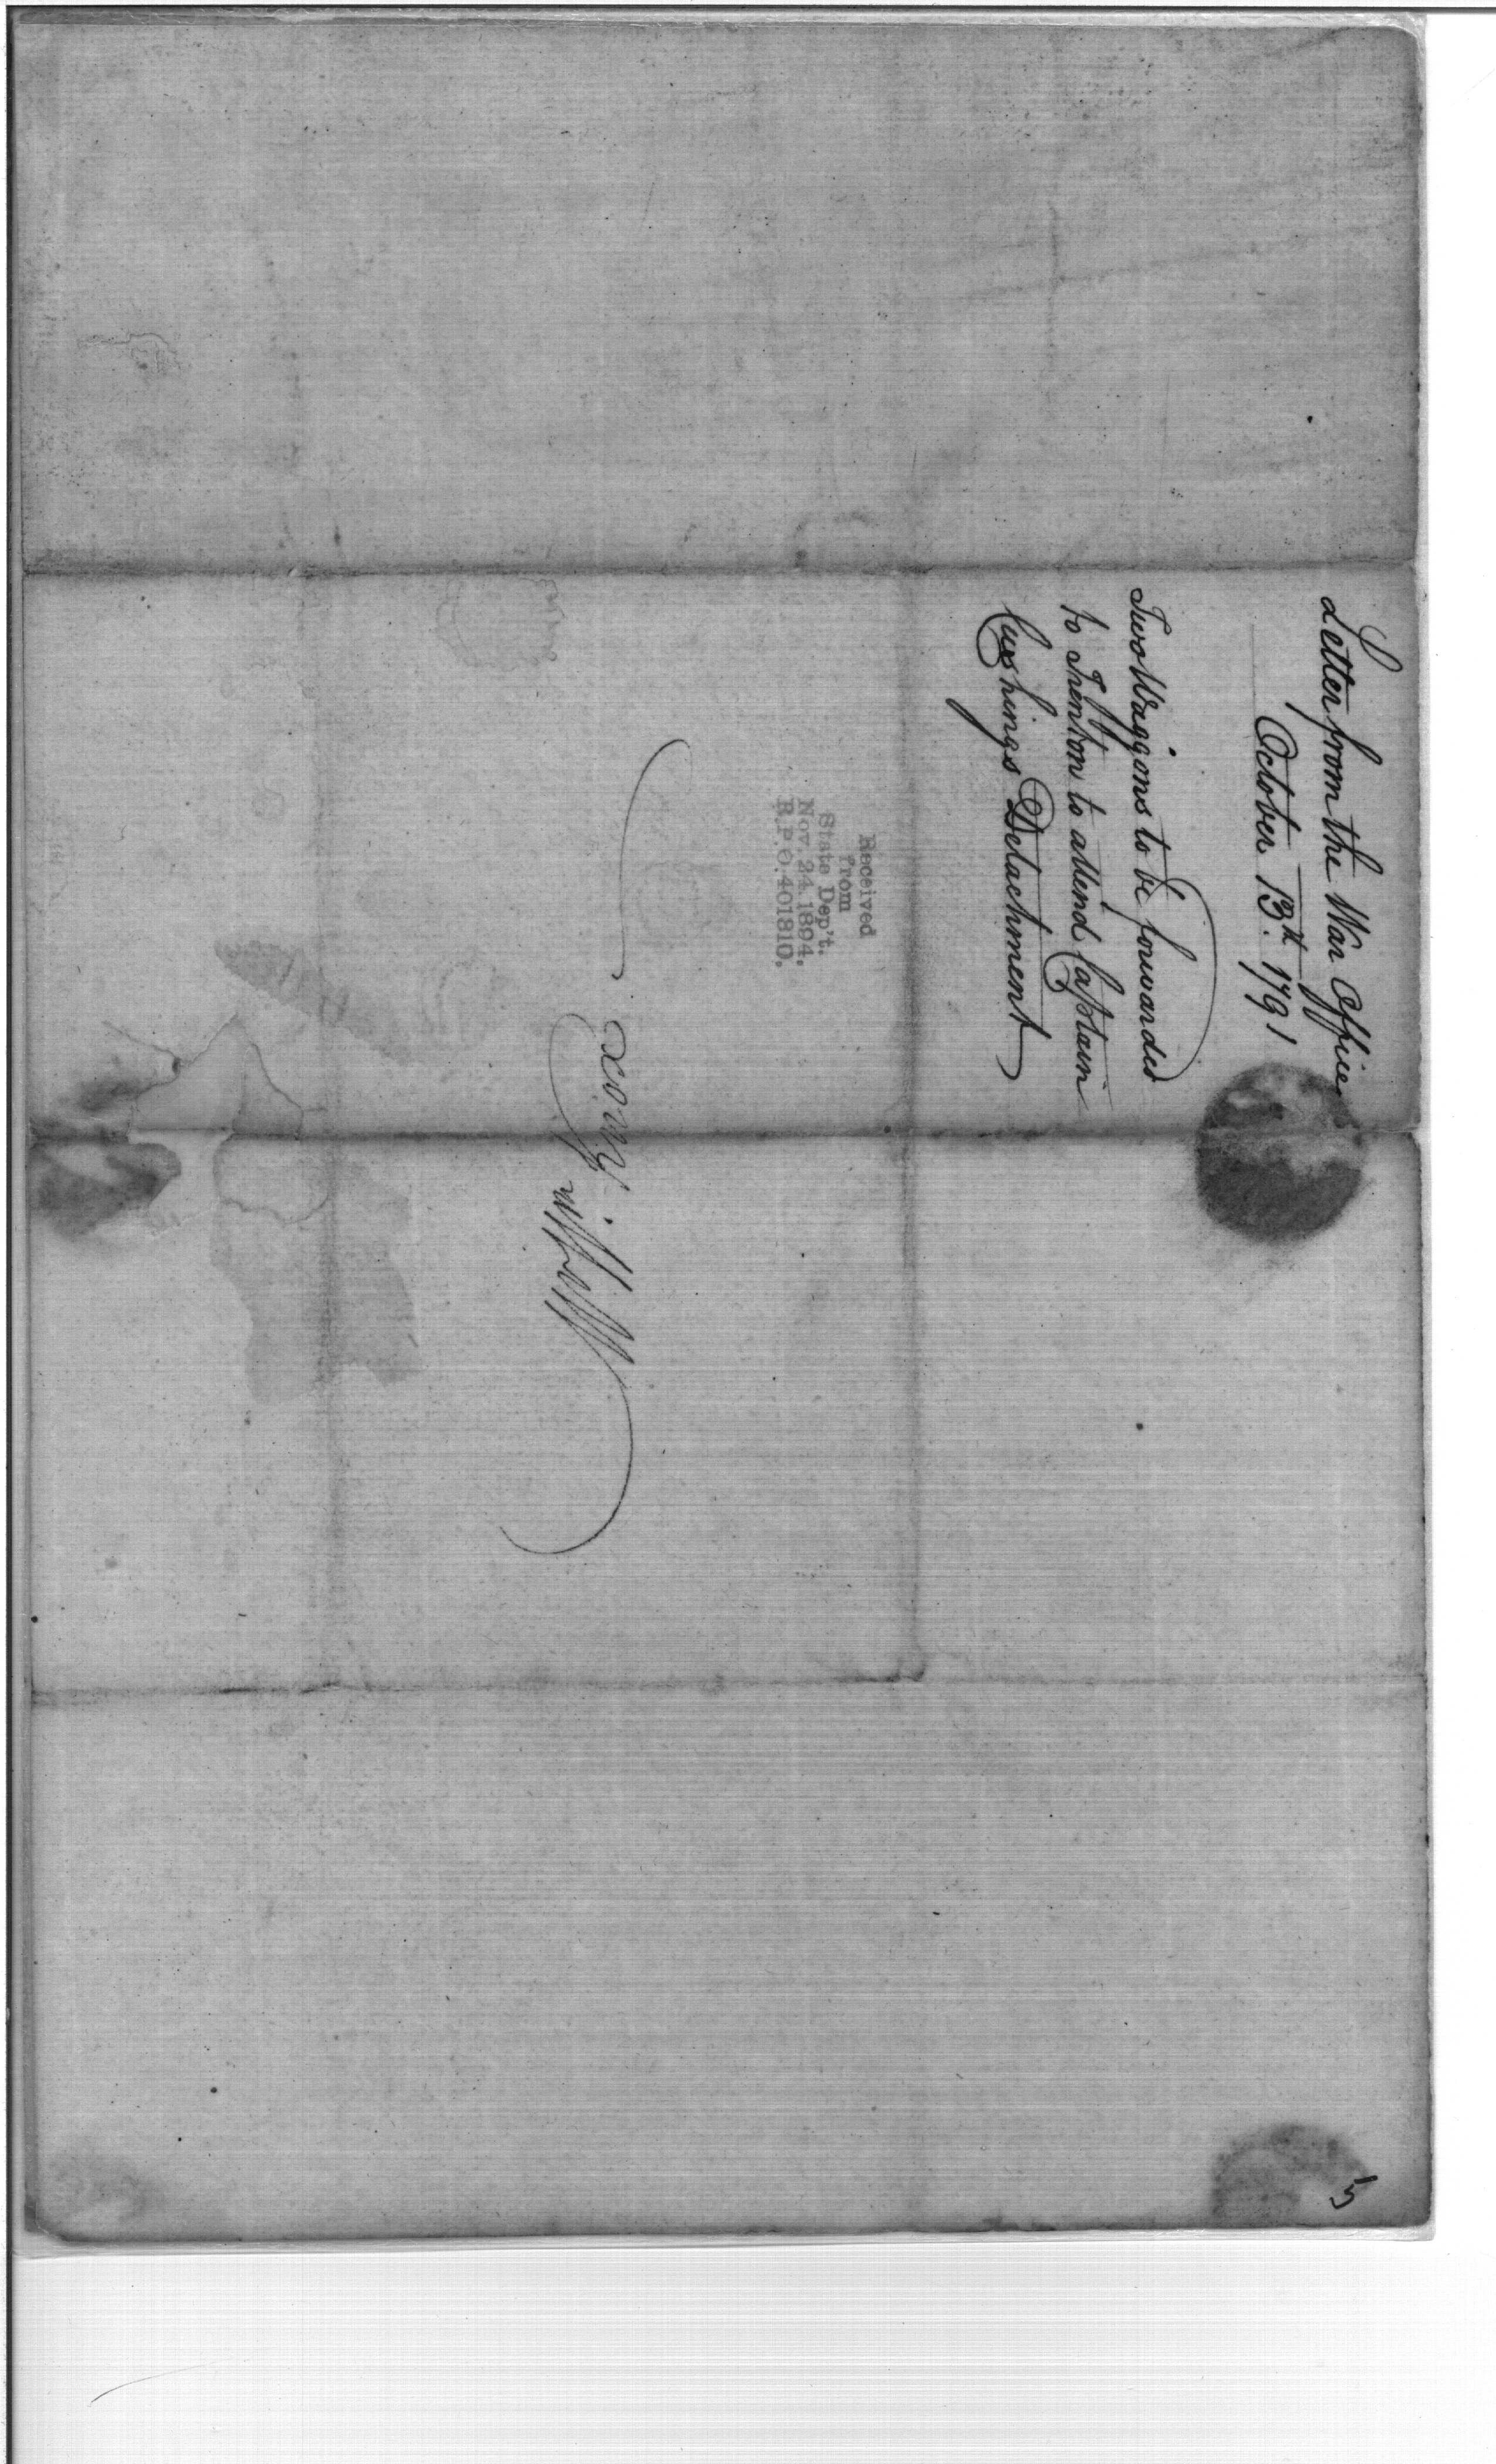 Letter from the War Office
October 13th. 1791
Two Waggons to be forwarded
to Trenton to attend Captain
Cushings Detachment
Received
from
State Dep't.
Nov. 24. 1894.
R.P.O. 401810.
5